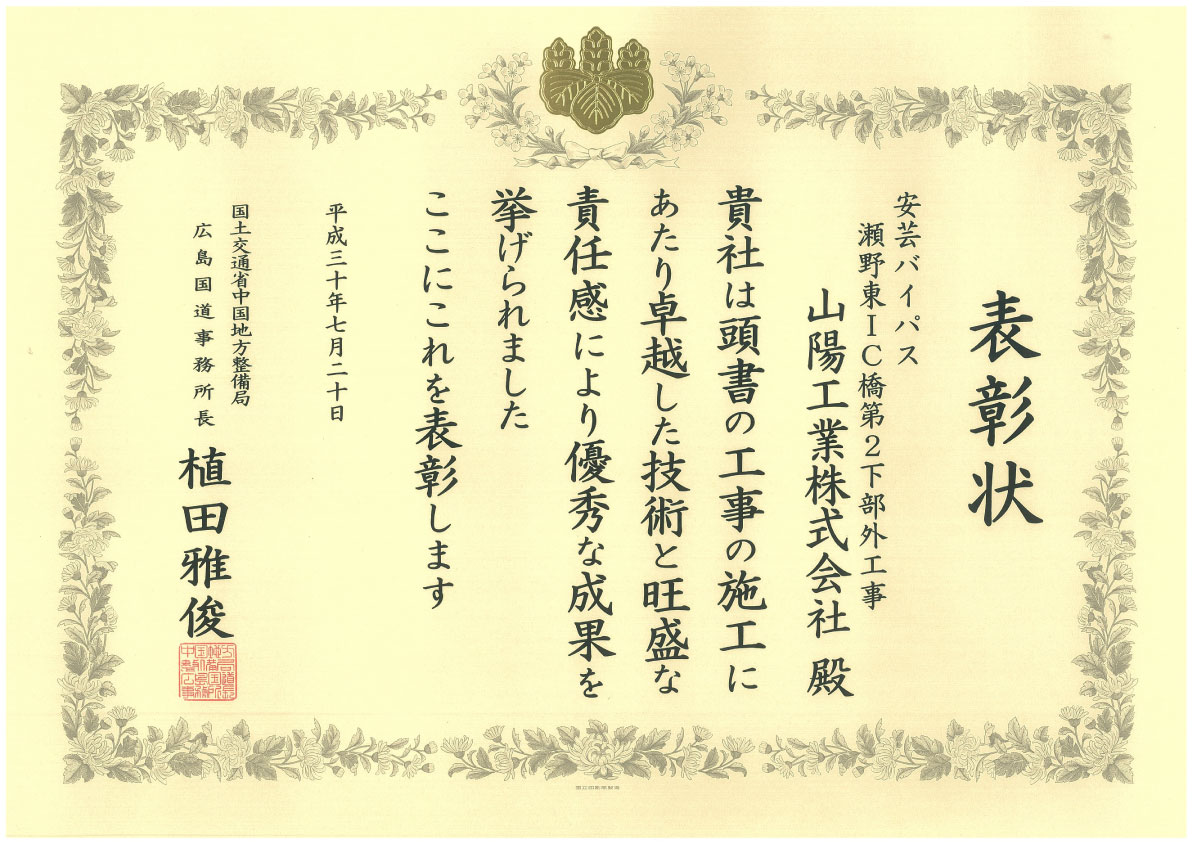 表彰状
安芸バイパス
瀬野東ＩＣ橋第２下部外工事
山陽工業株式会社 殿
貴社は頭書の工事の施工に
あたり卓越した技術と旺盛な
責任感により優秀な成果を
挙げられました
ここにこれを表彰します
平成三十年七月二十日
国土交通省中国地方整備局
広島国道事務所長
植田雅俊